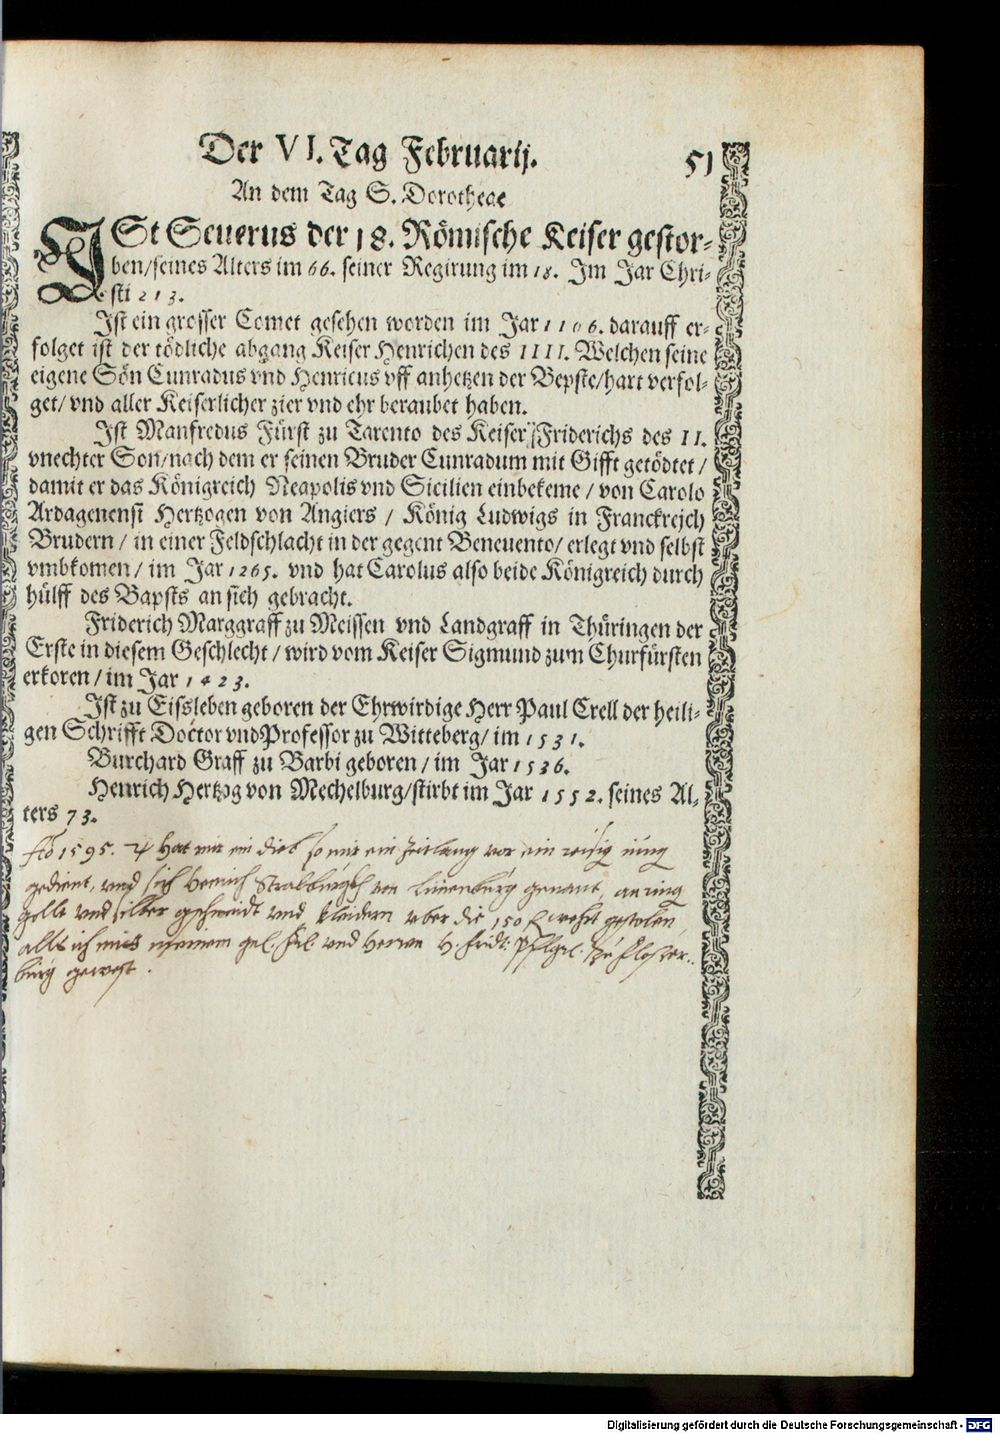 Der VI. Tag Februarij.
51
An dem Tag S. Dorotheae
ISt Seuerus der 18. Römische Keiser gestor-
ben/seines Alters im 66. seiner Regirung im 18. Im Jar Chri-
sti 213.
Ist ein grosser Comet gesehen worden im Jar 1106. darauff er-
folget ist der tödliche abgang Keiser Henrichen des IIII. Welchen seine
eigene Sön Cunradus vnd Henricus vff anhetzen der Bepste/hart verfol-
get/ vnd aller Keiserlicher zier vnd ehr beraubet haben.
Ist Manfredus Fürst zu Tarento des Keiser Friderichs des II.
vnechter Son/nach dem er seinen Bruder Cunradum mit Gifft getödtet/
damit er das Königreich Neapolis vnd Sicilien einbekeme/ von Carolo
Ardagenensi Hertzogen von Angiers/ König Ludwigs in Franckrejch
Brudern/ in einer Feldschlacht in der gegent Beneuento/ erlegt vnd selbst
vmbkomen/ im Jar 1265. vnd hat Carolus also beide Königreich durch
hülff des Bapsts an sich gebracht.
Friderich Marggraff zu Meissen vnd Landgraff in Thüringen der
Erste in diesem Geschlecht/ wird vom Keiser Sigmund zum Churfürsten
erkoren/ im Jar 1423.
Ist zu Eissleben geboren der Ehrwirdige Herr Paul Crell der heili-
gen Schrifft Doctor vnd Professor zu Witteberg/ im 1531.
Burchard Graff zu Barbi geboren/ im Jar 1536.
Henrich Hertzog von Mechelburg/stirbt im Jar 1552. seines Al-
ters 73.
1595. Hat mir ein dieb so mir ein Zeitlang vor ein reisig iung
gedient, vnd sich Henrich von Lünenburg genant, an ring
gellt vnd silber geschmeidt vnd kleidern vber die 150 wehrt gestolen,
alls ich mitt meinem gel. vnd Herren H. Frid:
burg gewest.
Digitalisierung gefördert durch die Deutsche Forschungsgemeinschaft - DFG